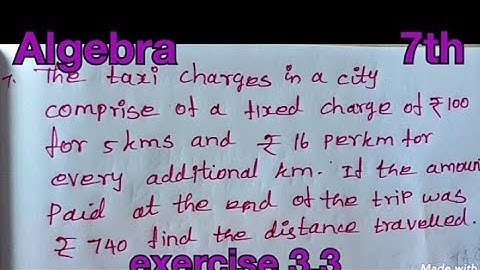 Algebra 7th
7. The taxi charges in a city
comprise of a fixed charge of ₹100
for 5kms and ₹ 16 perkm for
every additional km. If the amoun
Paid at the end of the trip was
₹ 740 find the distance travelled.
exercise 3.3
Made with